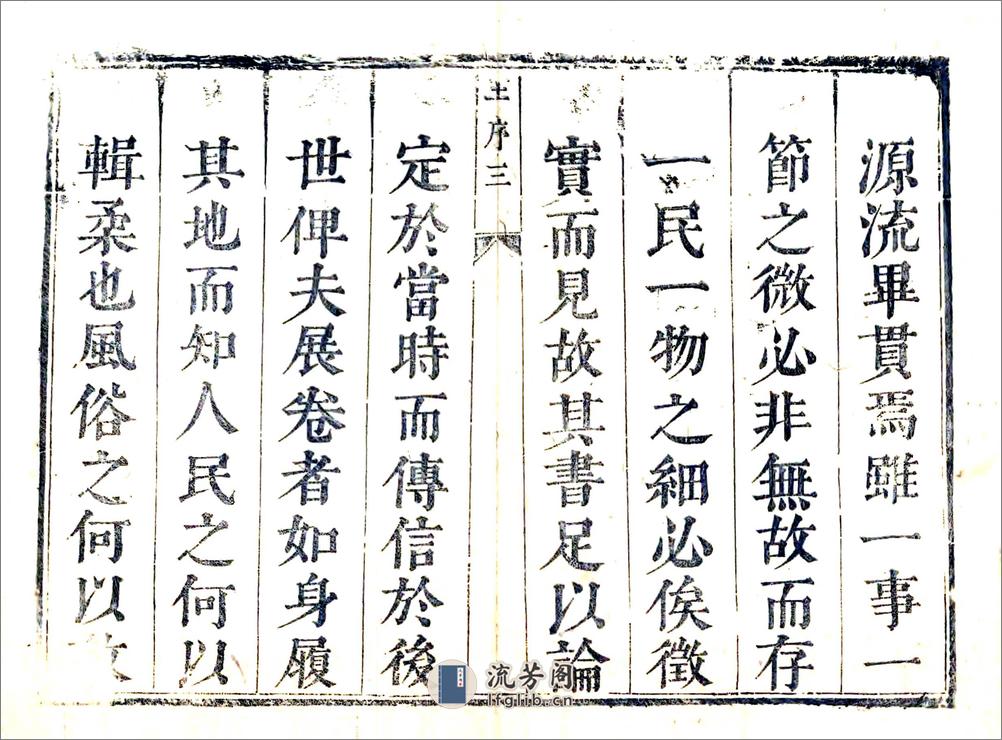 源流畢貫焉雖一事一
節之微必非無故而存
一民一物之細必俟徵
實而見故其書足以論
序三
定於當時而傳信於後
世俾夫展卷者如身履
其地而知人民之何以
輯柔也風俗之何以
流芳阁
lfglib.cn